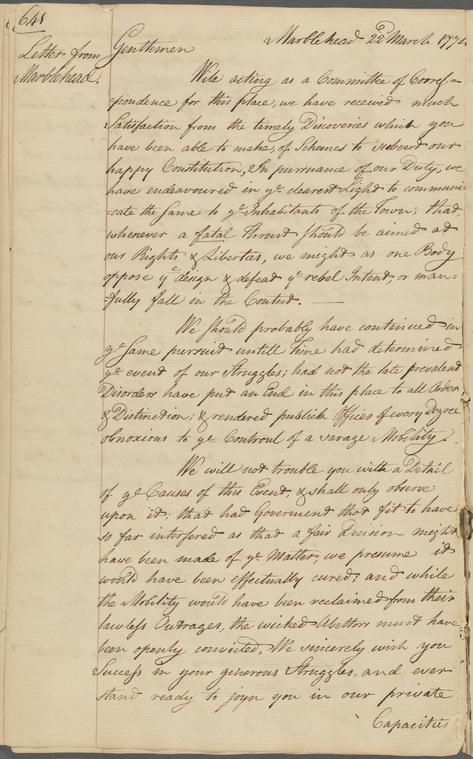 641
Letter from
Marblehead.
Marblehead 22d March 1774.
Gentlemen
Wile acting as a Committee of Corres=
=pondence for this place, we have received much
Satisfaction from the timely Discoveries which you
have been able to make, of Schemes to subvert our
happy Constitution, In pursuance of our Duty, we
have endeavoured in ye clearest Light to communi
=cate the Same to ye Inhabitants of the Town; that,
whenever a fatal thrust should be aimed at
our Rights & Liberties, we might as one Body
oppose ye design & defeat ye rebel Intent, or man=
=fully fall in the Contest. —
We should probably have continued in
ye Same pursuit untill Time had determined
ye event of our Struggles; had not the late prevalent
Disorders have put an End in this place to all Order
& Distinction; & rendered publick Offices of every Degree
obnoxious to ye Controul of a savage Mobility.
We will not trouble you with a Detail
of ye Causes of this Event, & shall only observe
upon it; that had Goverment thot fit to have
so far interfered as that a fair Decision might
have been made of ye Matter, we presume it
would have been effectually cured; and while
the Mobility would have been reclaimed from their
lawless Outrages, the wicked Abettors must have
been openly convicted. We sincerely wish you
Success in your generous Struggles, and ever
stand ready to joyn you in our private
Capacities